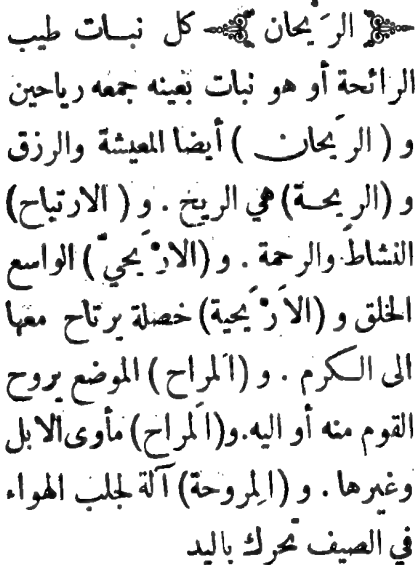 الرَيحان كل نبات طيب
الرائحة أو هو نبات بعينه جمعه رياحين
و ( الرَيحان ) أيضا المعيشة والرزق
و (الريحة) هي الريح . و ( الارتياح)
النشاط والرحمة . و (الارْيَحيّ) الواسع
الخلق و (الأرْيَحية) خصلة يرتاح معها
الى الكرم . و (المَراح ) الموضع يروح
القوم منه أو اليه. و(المُراح) مأوى الابل
وغيرها . و (المِروحة) آلة لجلب الهواء
في الصيف تحرك باليد